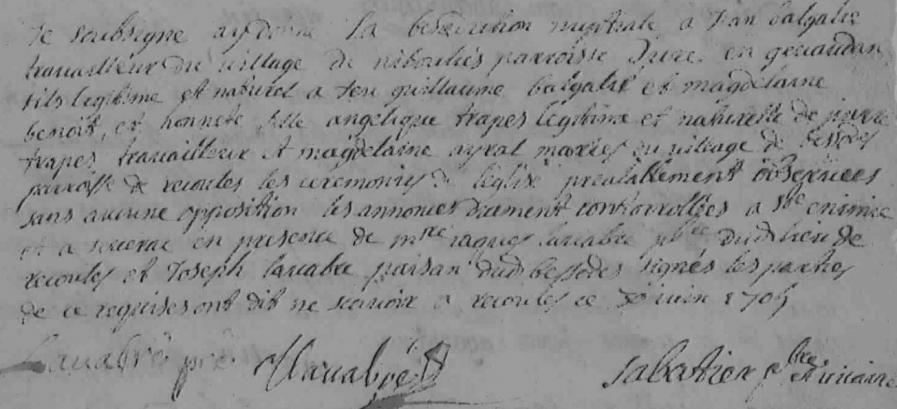 Je soubsigne ay donné la benediction nuptiale a Jean balgalie
travailleur du village de paroisse en gevaudan
fils legitime et naturel a feu guillaume balgalie et magdelaine
benoit, et honnete fille angelique trapes legitime et naturelle de pierre
trapes travailleur et magdelaine ayral maries du village de bessodes
paroisse de recoules les ceremonies de l'eglise prealablement observees
sans aucune opposition les annonces deument controvollées a Ste enimie
et a en presence de mre Jaques lavabre pbre dud lieu de
recoules et Joseph lavabre paisan dud bessodes signés les parties
de ce requises ont dit ne scavoir a recoules ce juin 1705
Lavabre pre Lavabre Sabatier pbre vicaire